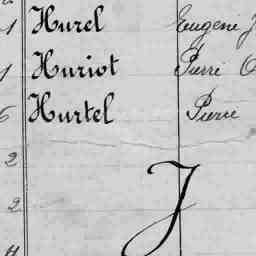 1 Hurel Eugène J
1 Huriot Pierre
6 Hurtel Pierre
2
J
2
4